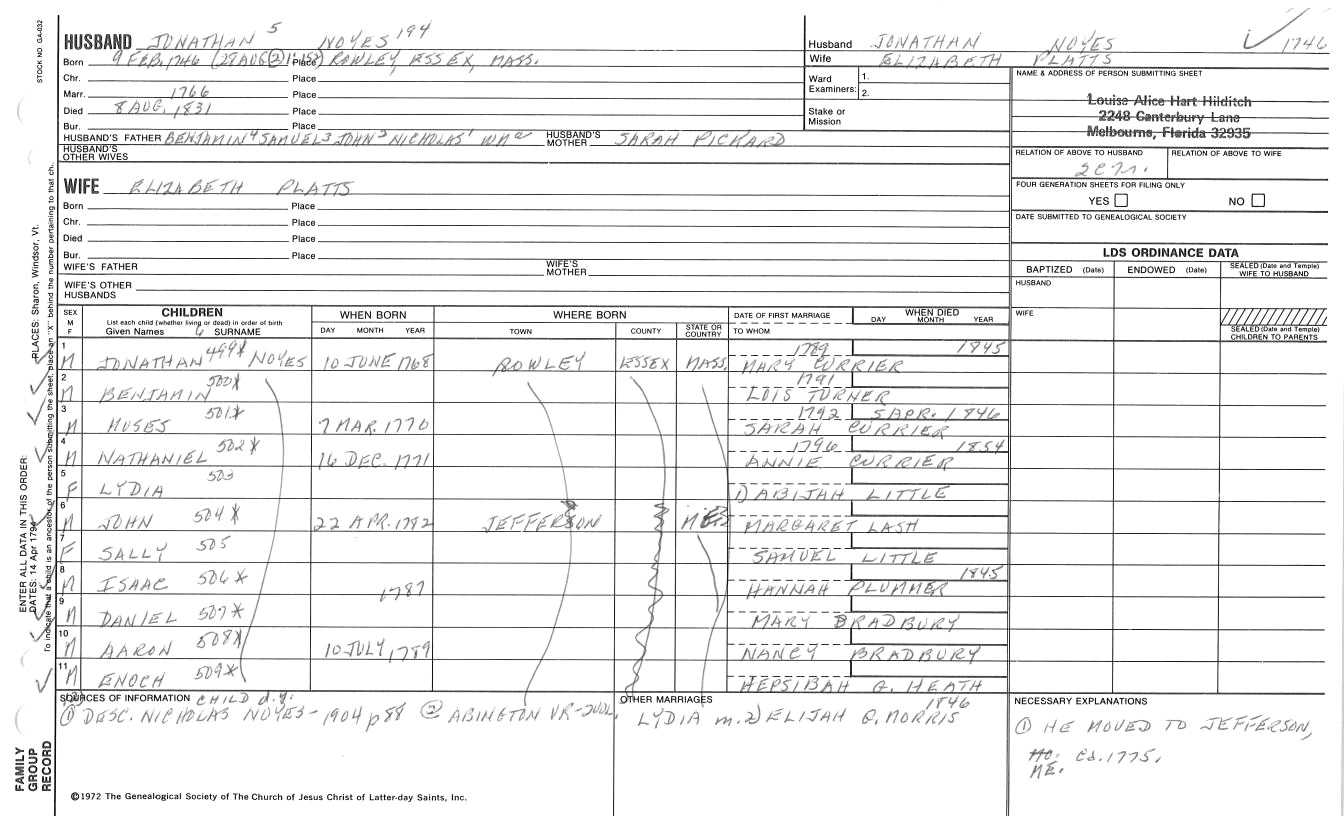 STOCK NO. GA-032
HUSBAND JONATHAN 5 NOYES 194
Born 9 FEB. 1746 Place ROWLEY, ESSEX, MASS.
Chr. Place
Marr. 1766 Place
Died 8 AUG. 1831 Place
Bur. Place
HUSBAND'S FATHER BENJAMIN 4 SAMUEL 3 JOHN 2 NICHOLAS 1 HUSBAND'S MOTHER SARAH PICKARD
HUSBAND'S OTHER WIVES
Husband JONATHAN NOYES 1746
Wife ELIZABETH PLATTS
Ward Examiners: 1. 2.
Stake or Mission
NAME & ADDRESS OF PERSON SUBMITTING SHEET
Louise Alice Hart Hilditch
2248 Canterbury Lane
Melbourne, Florida 32935
RELATION OF ABOVE TO HUSBAND RELATION OF ABOVE TO WIFE
FOUR GENERATION SHEETS FOR FILING ONLY
YES NO
DATE SUBMITTED TO GENEALOGICAL SOCIETY
WIFE ELIZABETH PLATTS
Born Place
Chr. Place
Died Place
Bur. Place
WIFE'S FATHER WIFE'S MOTHER
WIFE'S OTHER HUSBANDS
LDS ORDINANCE DATA
BAPTIZED (Date) ENDOWED (Date) SEALED (Date and Temple) WIFE TO HUSBAND
HUSBAND
WIFE
SEALED (Date and Temple) CHILDREN TO PARENTS
SEX M F CHILDREN List each child (whether living or dead) in order of birth Given Names 6 SURNAME
WHEN BORN DAY MONTH YEAR
WHERE BORN TOWN COUNTY STATE OR COUNTRY
DATE OF FIRST MARRIAGE TO WHOM
WHEN DIED DAY MONTH YEAR
1 M JONATHAN 499X NOYES 10 JUNE 1768 ROWLEY ESSEX MASS. 1789 MARY CURRIER 1845
2 M BENJAMIN 500X 1791 LOIS TURNER
3 M MOSES 501X 7 MAR. 1770 1792 SARAH CURRIER 5 APR. 1846
4 M NATHANIEL 502X 16 DEC. 1771 1796 ANNIE CURRIER 1854
5 F LYDIA 503 1) ABIJAH LITTLE
6 M JOHN 504X 22 APR. 1782 JEFFERSON ME MARGARET LASH
7 F SALLY 505 SAMUEL LITTLE
8 M ISAAC 506X 1787 HANNAH PLUMMER 1845
9 M DANIEL 507X MARY BRADBURY
10 M AARON 508X 10 JULY, 1789 NANCY BRADBURY
11 M ENOCH 509X HEPSIBAH G. HEATH 1846
SOURCES OF INFORMATION CHILD d.y.
① DESC. NICHOLAS NOYES - 1904 p 88 ② ABINGTON VR-
OTHER MARRIAGES
LYDIA m. 2) ELIJAH Q. NORRIS
NECESSARY EXPLANATIONS
① HE MOVED TO JEFFERSON,
ME. Ca. 1775.
©1972 The Genealogical Society of The Church of Jesus Christ of Latter-day Saints, Inc.
ENTER ALL DATA IN THIS ORDER:
DATES: 14 Apr 1794
PLACES: Sharon, Windsor, Vt.
To indicate that a child is an ancestor of the person submitting the sheet, place an "X" behind the number pertaining to that ch.
FAMILY GROUP RECORD